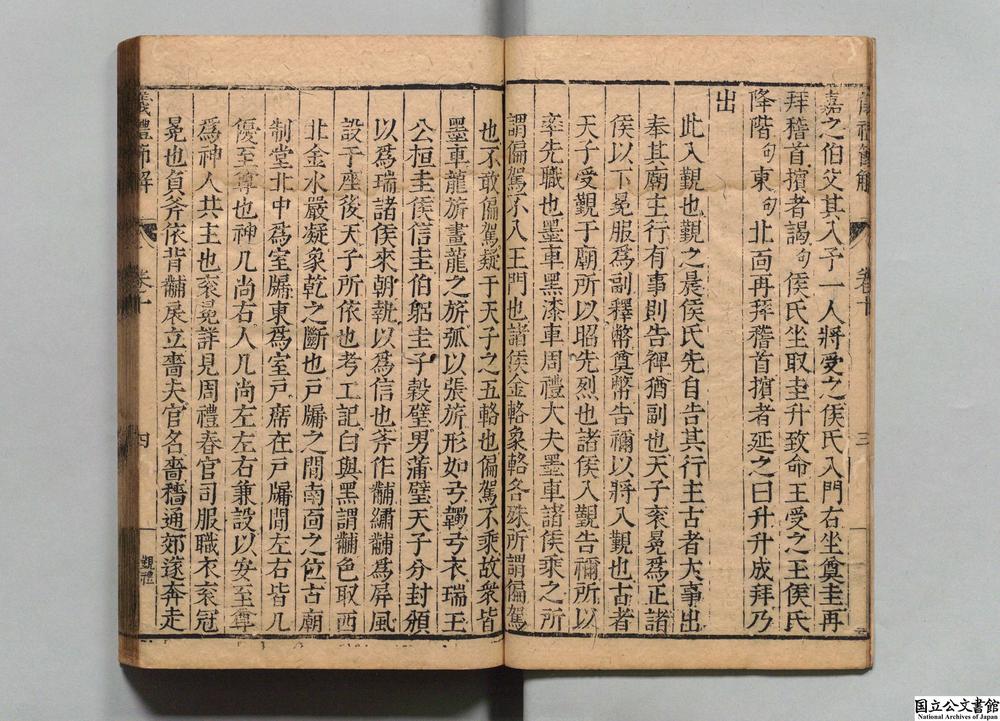 嘉之伯父其入予一人將受之侯氏入門右坐奠圭再
拜稽首擯者謁句侯氏坐取圭升致命王受之王侯氏
降階句東句北面再拜稽首擯者延之曰升升成拜乃
出
此入覲也覲之是侯氏先自告其行主古者大事出
奉其廟主行有事則告裨猶副也天子衮冕爲正諸
侯以下冕服爲副釋幣奠幣告禰以將入覲也古者
天子受覲于廟所以昭先烈也諸侯入覲告禰所以
率先職也墨車黑漆車周禮大夫墨車諸侯乘之所
謂偏駕不入王門也諸侯金輅象輅各殊所謂偏駕
也不敢偏駕疑于天子之五輅也偏駕不乘故衆皆
墨車龍旂畫龍之旂弧以張旂形如弓韣弓衣瑞玉
公桓圭侯信圭伯躬圭子穀璧男蒲璧天子分封頒
以爲瑞諸侯來朝執以爲信也斧作黼繡黼爲屏風
設于座後天子所依也考工記白與黑謂黼色取西
北金水嚴凝象乾之斷也戶牖之間南面之位古廟
制堂北中爲室牖東爲室戶席在戶牖間左右皆几
優至尊也神几尚右人几尚左左右兼設以安至尊
爲神人共主也衮冕詳見周禮春官司服職衣衮冠
冕也負斧依背黼扆立嗇夫官名嗇穡通郊遂奔走
儀禮節解
卷十
三
儀禮節解
卷十
四
覲禮
国立公文書館
National Archives of Japan